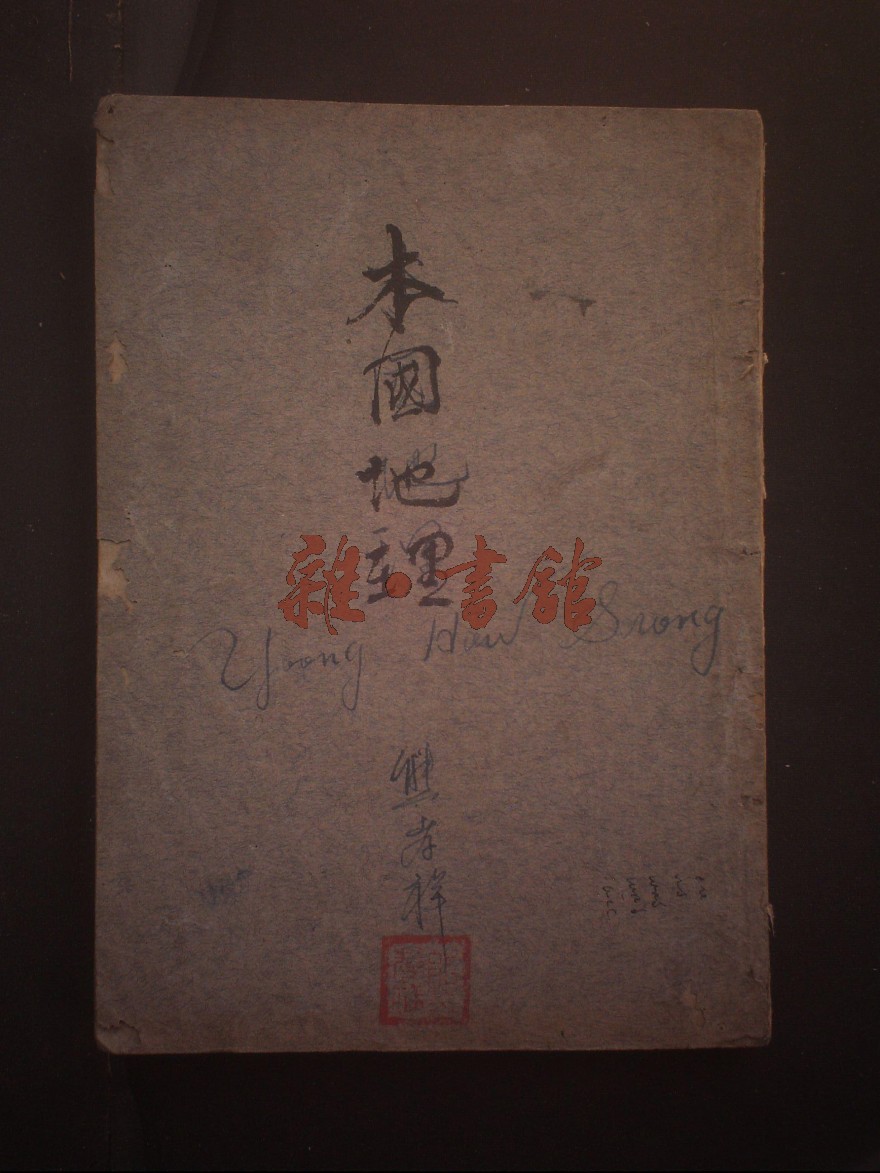 本國地理
雜·書館
Yoong Hau Srong
熊孝祥